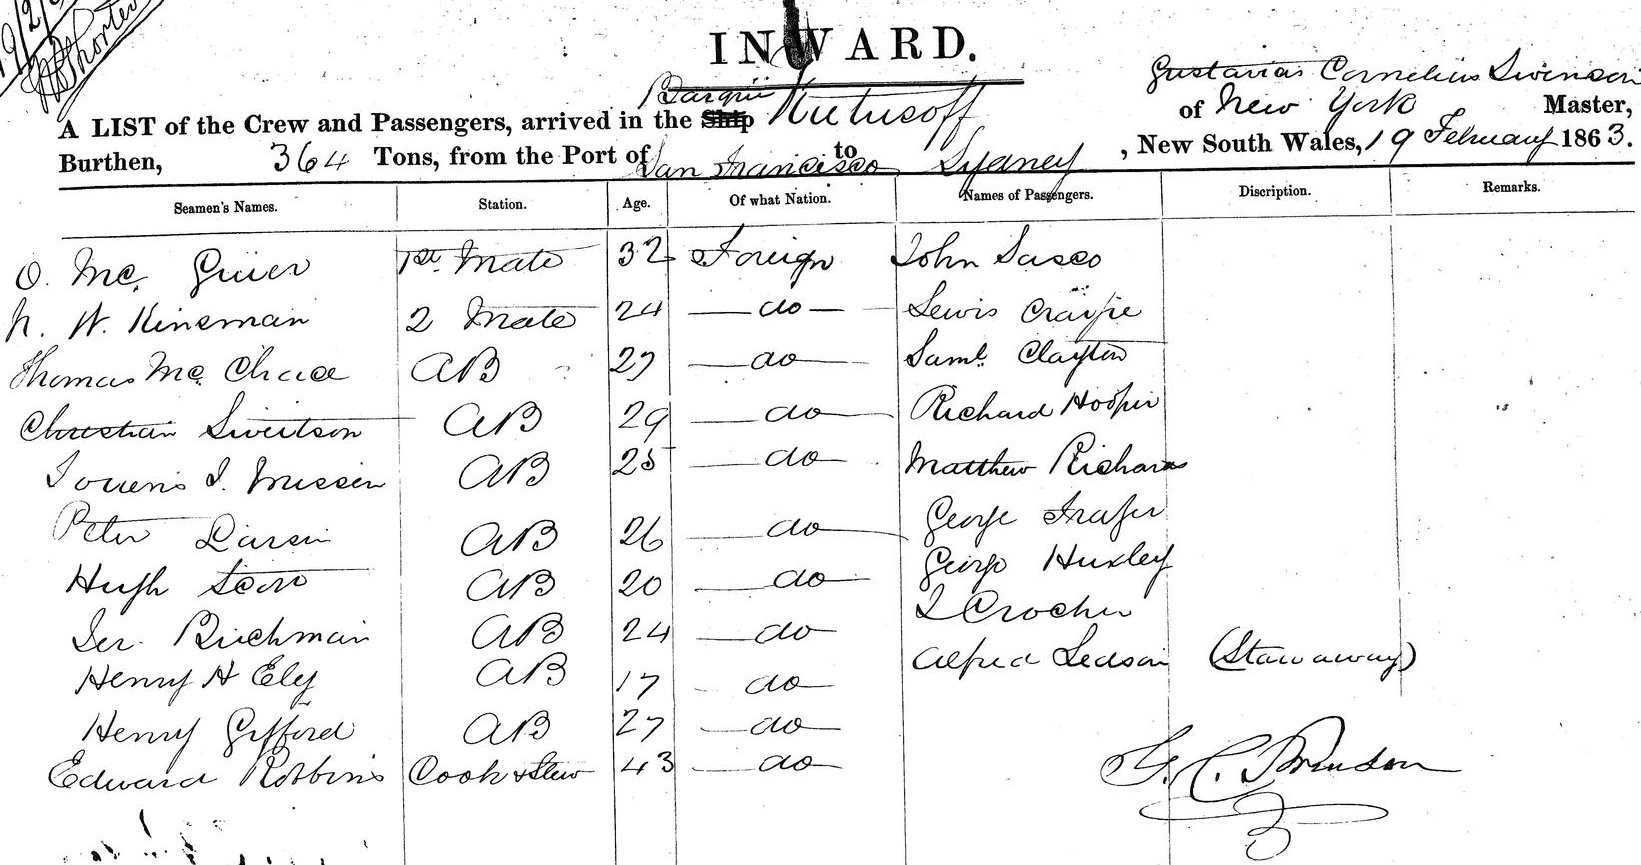 INWARD.
Gustavias Cornelius Swenson
Barque Kutusoff
of New York Master,
A LIST of the Crew and Passengers, arrived in the Ship
Burthen, 364 Tons, from the Port of San Francisco to Sydney, New South Wales, 19 February 1863.
Seamen's Names. Station. Age. Of what Nation. Names of Passengers. Discription. Remarks.
O. Mc. 1st Mate 32 Foreign John Sasco
N. W. Kinsman 2 Mate 24 do Lewis
Thomas Mc. AB 27 do Saml. Clayton
Christian Sivertson AB 29 do Richard Hooper
AB 25 do Matthew Richards
Peter Larsin AB 26 do George Frazer
Hugh Scott AB 20 do George Huxley
Jer. Richman AB 24 do Crocker
Henry H Ely AB 17 do Alfred Ledson (Stawaway)
Henry Gifford AB 27 do
Edward Robbins Cook & Stew 43 do